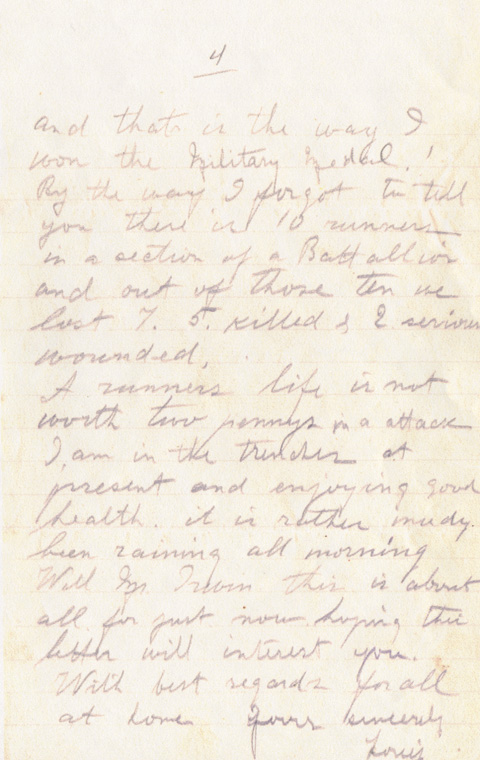 4
and thats is the way I
won the Military Medal.!
By the way I forgot to tell
you there is 10 runners
in a section of a Battallion
and out of those ten we
lost 7. 5. killed & 2 serious
wounded.
A runners life is not
worth two pennys in a attack
I, am in the trenches at
present and enjoying good
health. it is rather mudy.
been raining all morning
Well Mr Irwin this is about
all for just now hoping this
letter will interest you.
With best regards for all
at home Yours sincerely
Louis